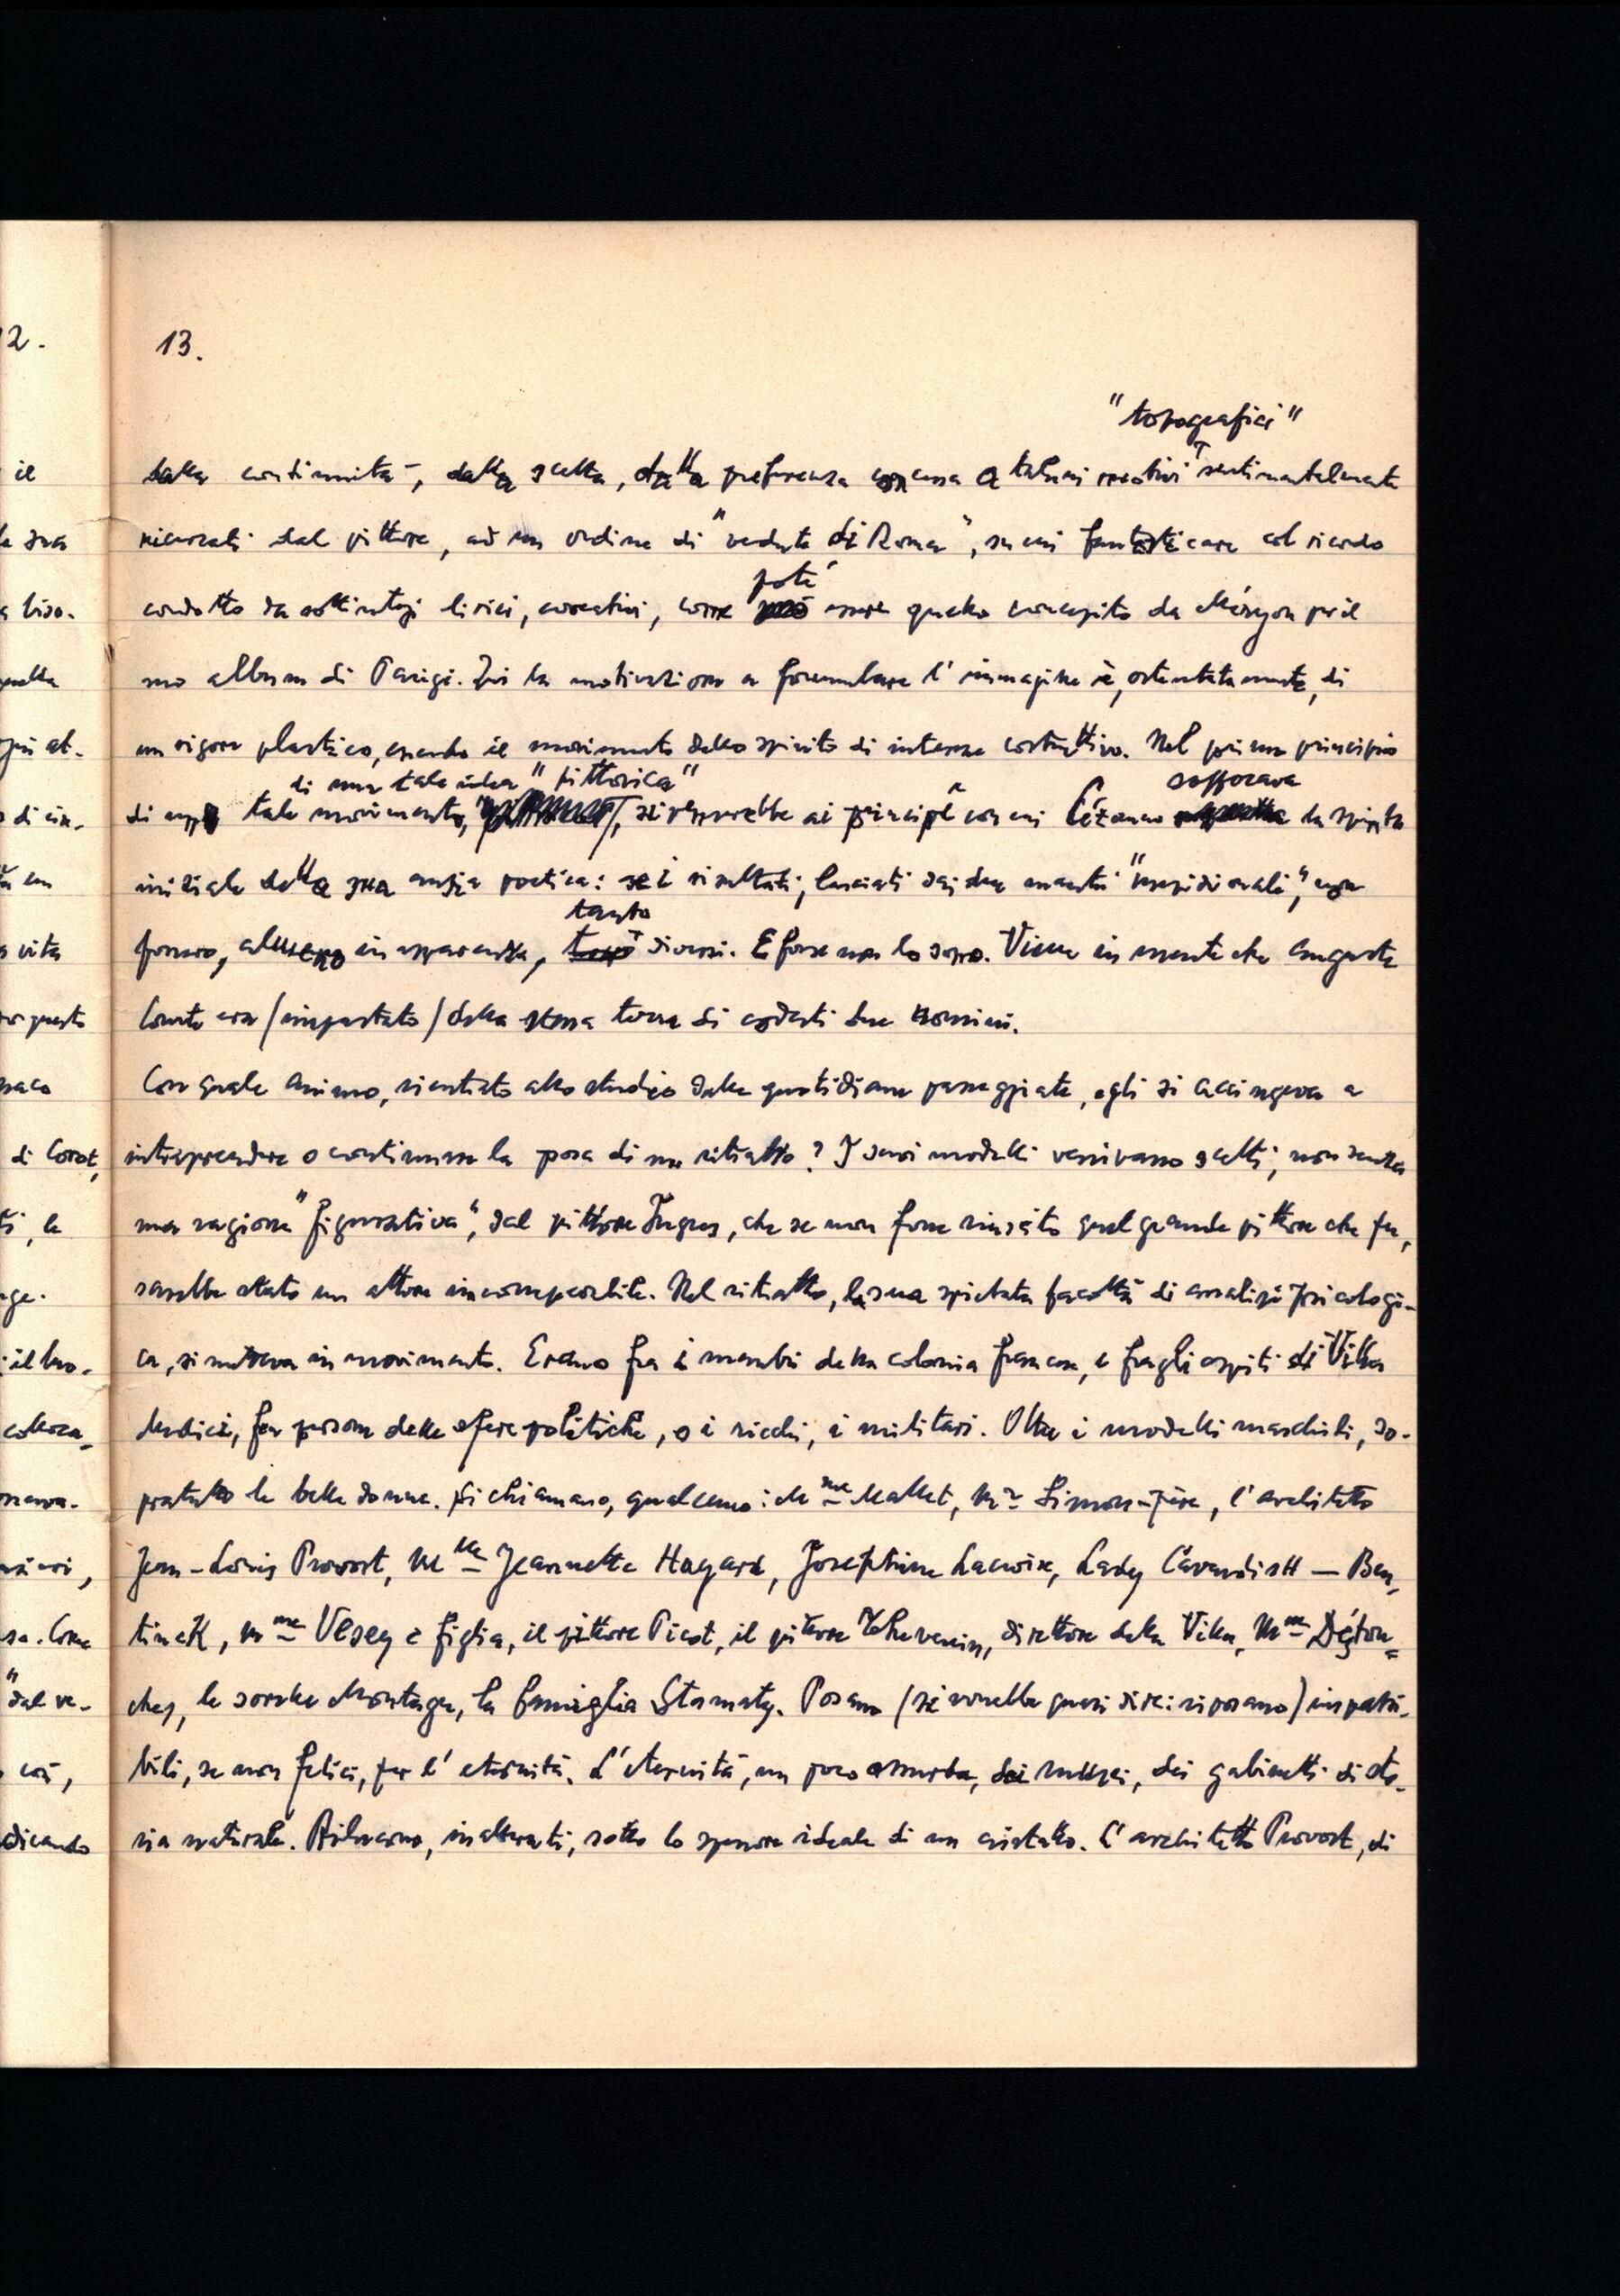 2.
13.
"topografici"
il
dalla continuità, dalla scelta, dalla preferenza concessa a taluni motivi sentimentalmente
la sua
ricercati dal pittore, ad un ordine di "vedute di Roma", su cui fantasticare col ricordo
poté
a biso-
condotto da sottintesi lirici, evocativi, come può essere quello concepito da Méryon per il
quella
suo album di Parigi. Qui la motivazione a formulare l'immagine è, ostentatamente, di
più at-
un rigore plastico, essendo il movimento dello spirito di interesse costruttivo. Nel primo principio
di una tale idea "pittorica"
soffocava
di in-
di tale movimento, si penserebbe ai principî con cui Cézanne la spinta
iniziale della sua ansia poetica: se i risultati, lasciati dai due maestri "meridionali", non
tanto
vita
fossero, almeno in apparenza, diversi. E forse non lo sono. Viene in mente che Auguste
questo
Comte era (impastato) della stessa terra di codesti due uomini.
Con quale animo, rientrato allo studio dalle quotidiane passeggiate, egli si accingeva a
di Corot,
intraprendere o continuare la posa di un ritratto? I suoi modelli venivano scelti, non senza
la
una ragione "figurativa", dal pittore Ingres, che se non fosse riuscito quel grande pittore che fu,
ge.
sarebbe stato un attore incomparabile. Nel ritratto, la sua spietata facoltà di analisi psicologi-
ca, si metteva in movimento. Erano fra i membri della colonia francese, e fra gli ospiti di Villa
colloca-
Medici, fra persone delle sfere politiche, o i ricchi, i militari. Oltre i modelli maschili, so-
pratutto le belle donne. Si chiamano, qualcuno: M.me Mallet, M.r Simon-père, l'architetto
Jean-Louis Provost, M.lle Jeannette Hayard, Joséphine Lacroix, Lady Cavendish — Ben-
se. Come
tinck, M.me Vesey e figlia, il pittore Picot, il pittore Thévenin, direttore della Villa, M.me Déstou-
"dal ve-
ches, le sorelle Montagu, la famiglia Stamaty. Posano (si vorrebbe quasi dire: riposano) impassi-
così,
bili, se non felici, per l'eternità. L'eternità, un poco assurda, dei musei, dei gabinetti di sto-
dicando
ria naturale. Rilucono, inalterati, sotto lo spessore ideale di un cristallo. L'architetto Provost, di